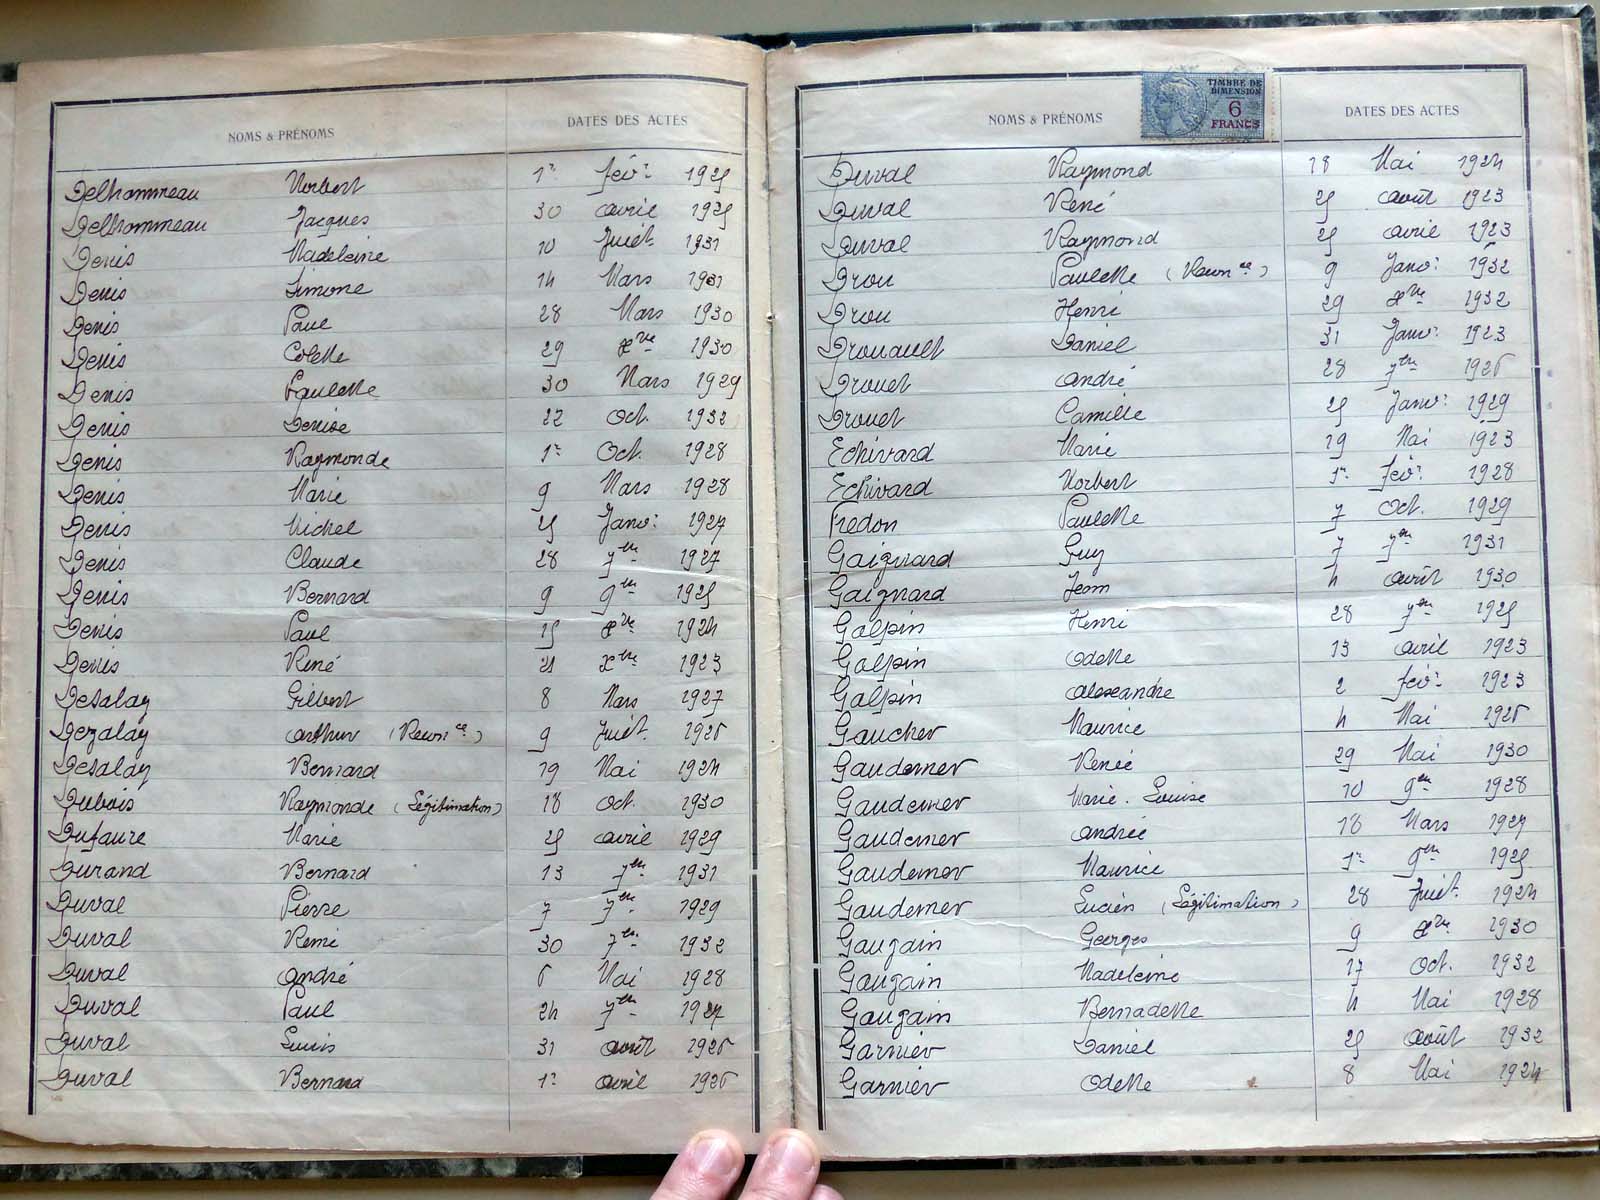 NOMS & PRÉNOMS DATES DES ACTES
Delhommeau Norbert 1er févr 1925
Delhommeau Jacques 30 avril 1925
Denis Madeleine 10 Juiet. 1931
Denis Simone 14 Mars 1931
Denis Paul 28 Mars 1930
Denis Colette 29 Xbre 1930
Denis Paulette 30 Mars 1929
Denis Denise 22 Oct. 1932
Denis Raymonde 1er Oct. 1928
Denis Marie 9 Mars 1928
Denis Michel 25 Janvr 1927
Denis Claude 28 7bre 1927
Denis Bernard 9 9bre 1925
Denis Paul 15 Xbre 1924
Denis René 21 Xbre 1923
Desalay Gilbert 8 Mars 1927
Dezalay Arthur (Reconce) 9 Juiet. 1926
Desalay Bernard 19 Mai 1924
Dubois Raymonde (Légitimation) 18 Oct. 1930
Dufaure Marie 25 avril 1929
Durand Bernard 13 7bre 1931
Duval Pierre 7 7bre 1929
Duval Remi 30 7bre 1932
Duval André 6 Mai 1928
Duval Paul 24 7bre 1927
Duval Louis 31 août 1926
Duval Bernard 1er avril 1926
NOMS & PRÉNOMS DATES DES ACTES
TIMBRE DE
DIMENSION
6
FRANCS
Duval Raymond 18 Mai 1924
Duval René 25 août 1923
Duval Raymond 25 avril 1923
Drou Paulette (Reconce) 9 Janvr 1932
Drou Henri 29 Xbre 1932
Drouault Daniel 31 Janvr 1923
Drouet André 28 7bre 1926
Drouet Camille 25 Janvr 1929
Echivard Marie 19 Mai 1923
Echivard Norbert 1er févr 1928
Fredon Paulette 7 Oct. 1929
Gaignard Guy 7 7bre 1931
Gaignard Jean 4 août 1930
Galpin Henri 28 7bre 1925
Galpin Odette 13 avril 1923
Galpin Alexandre 2 févr 1923
Gaucher Maurice 4 Mai 1926
Gaudemer Renée 29 Mai 1930
Gaudemer Marie-Louise 10 9bre 1928
Gaudemer Andrée 18 Mars 1927
Gaudemer Maurice 1er 9bre 1925
Gaudemer Lucien (Légitimation) 28 Juiet. 1924
Gaugain Georges 9 Xbre 1930
Gaugain Madeleine 17 Oct. 1932
Gaugain Bernadette 4 Mai 1928
Garnier Daniel 25 août 1932
Garnier Odette 8 Mai 1924